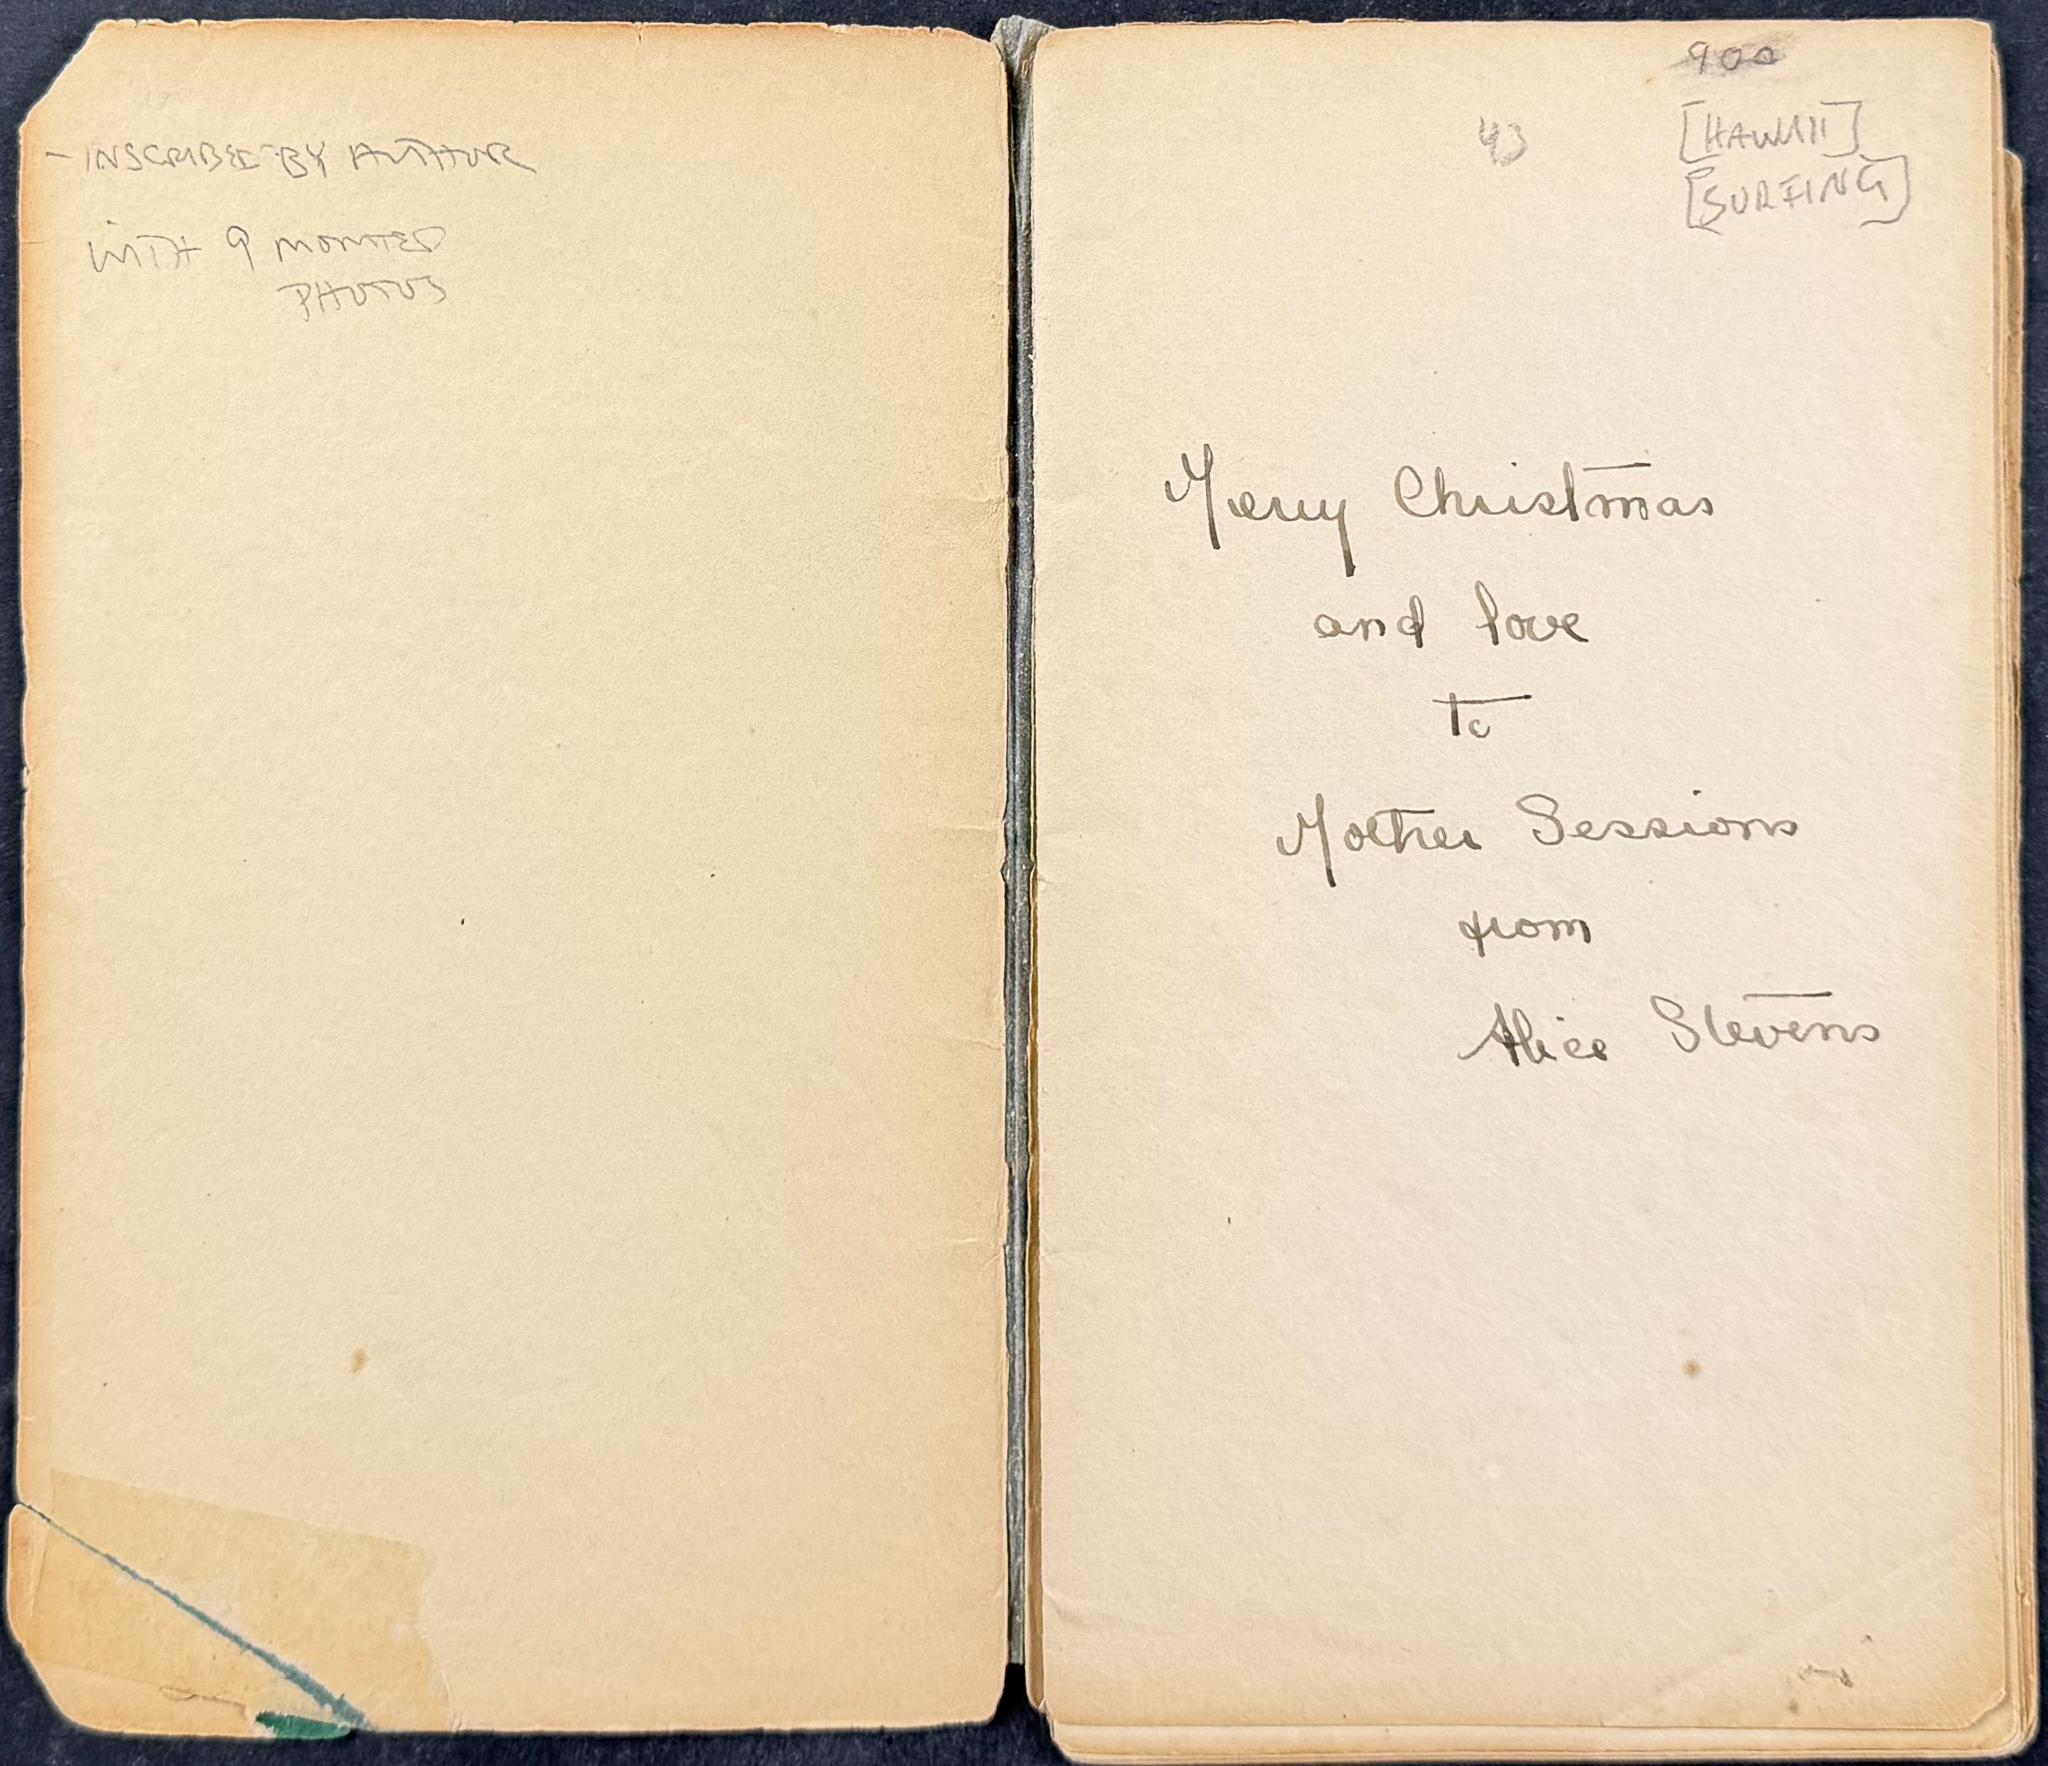 - INSCRIBED BY AUTHOR
WITH 9 MOUNTED
PHOTOS
900
43
[HAWAII]
[SURFING]
Merry Christmas
and love
to
Mother Sessions
from
Alice Stevens